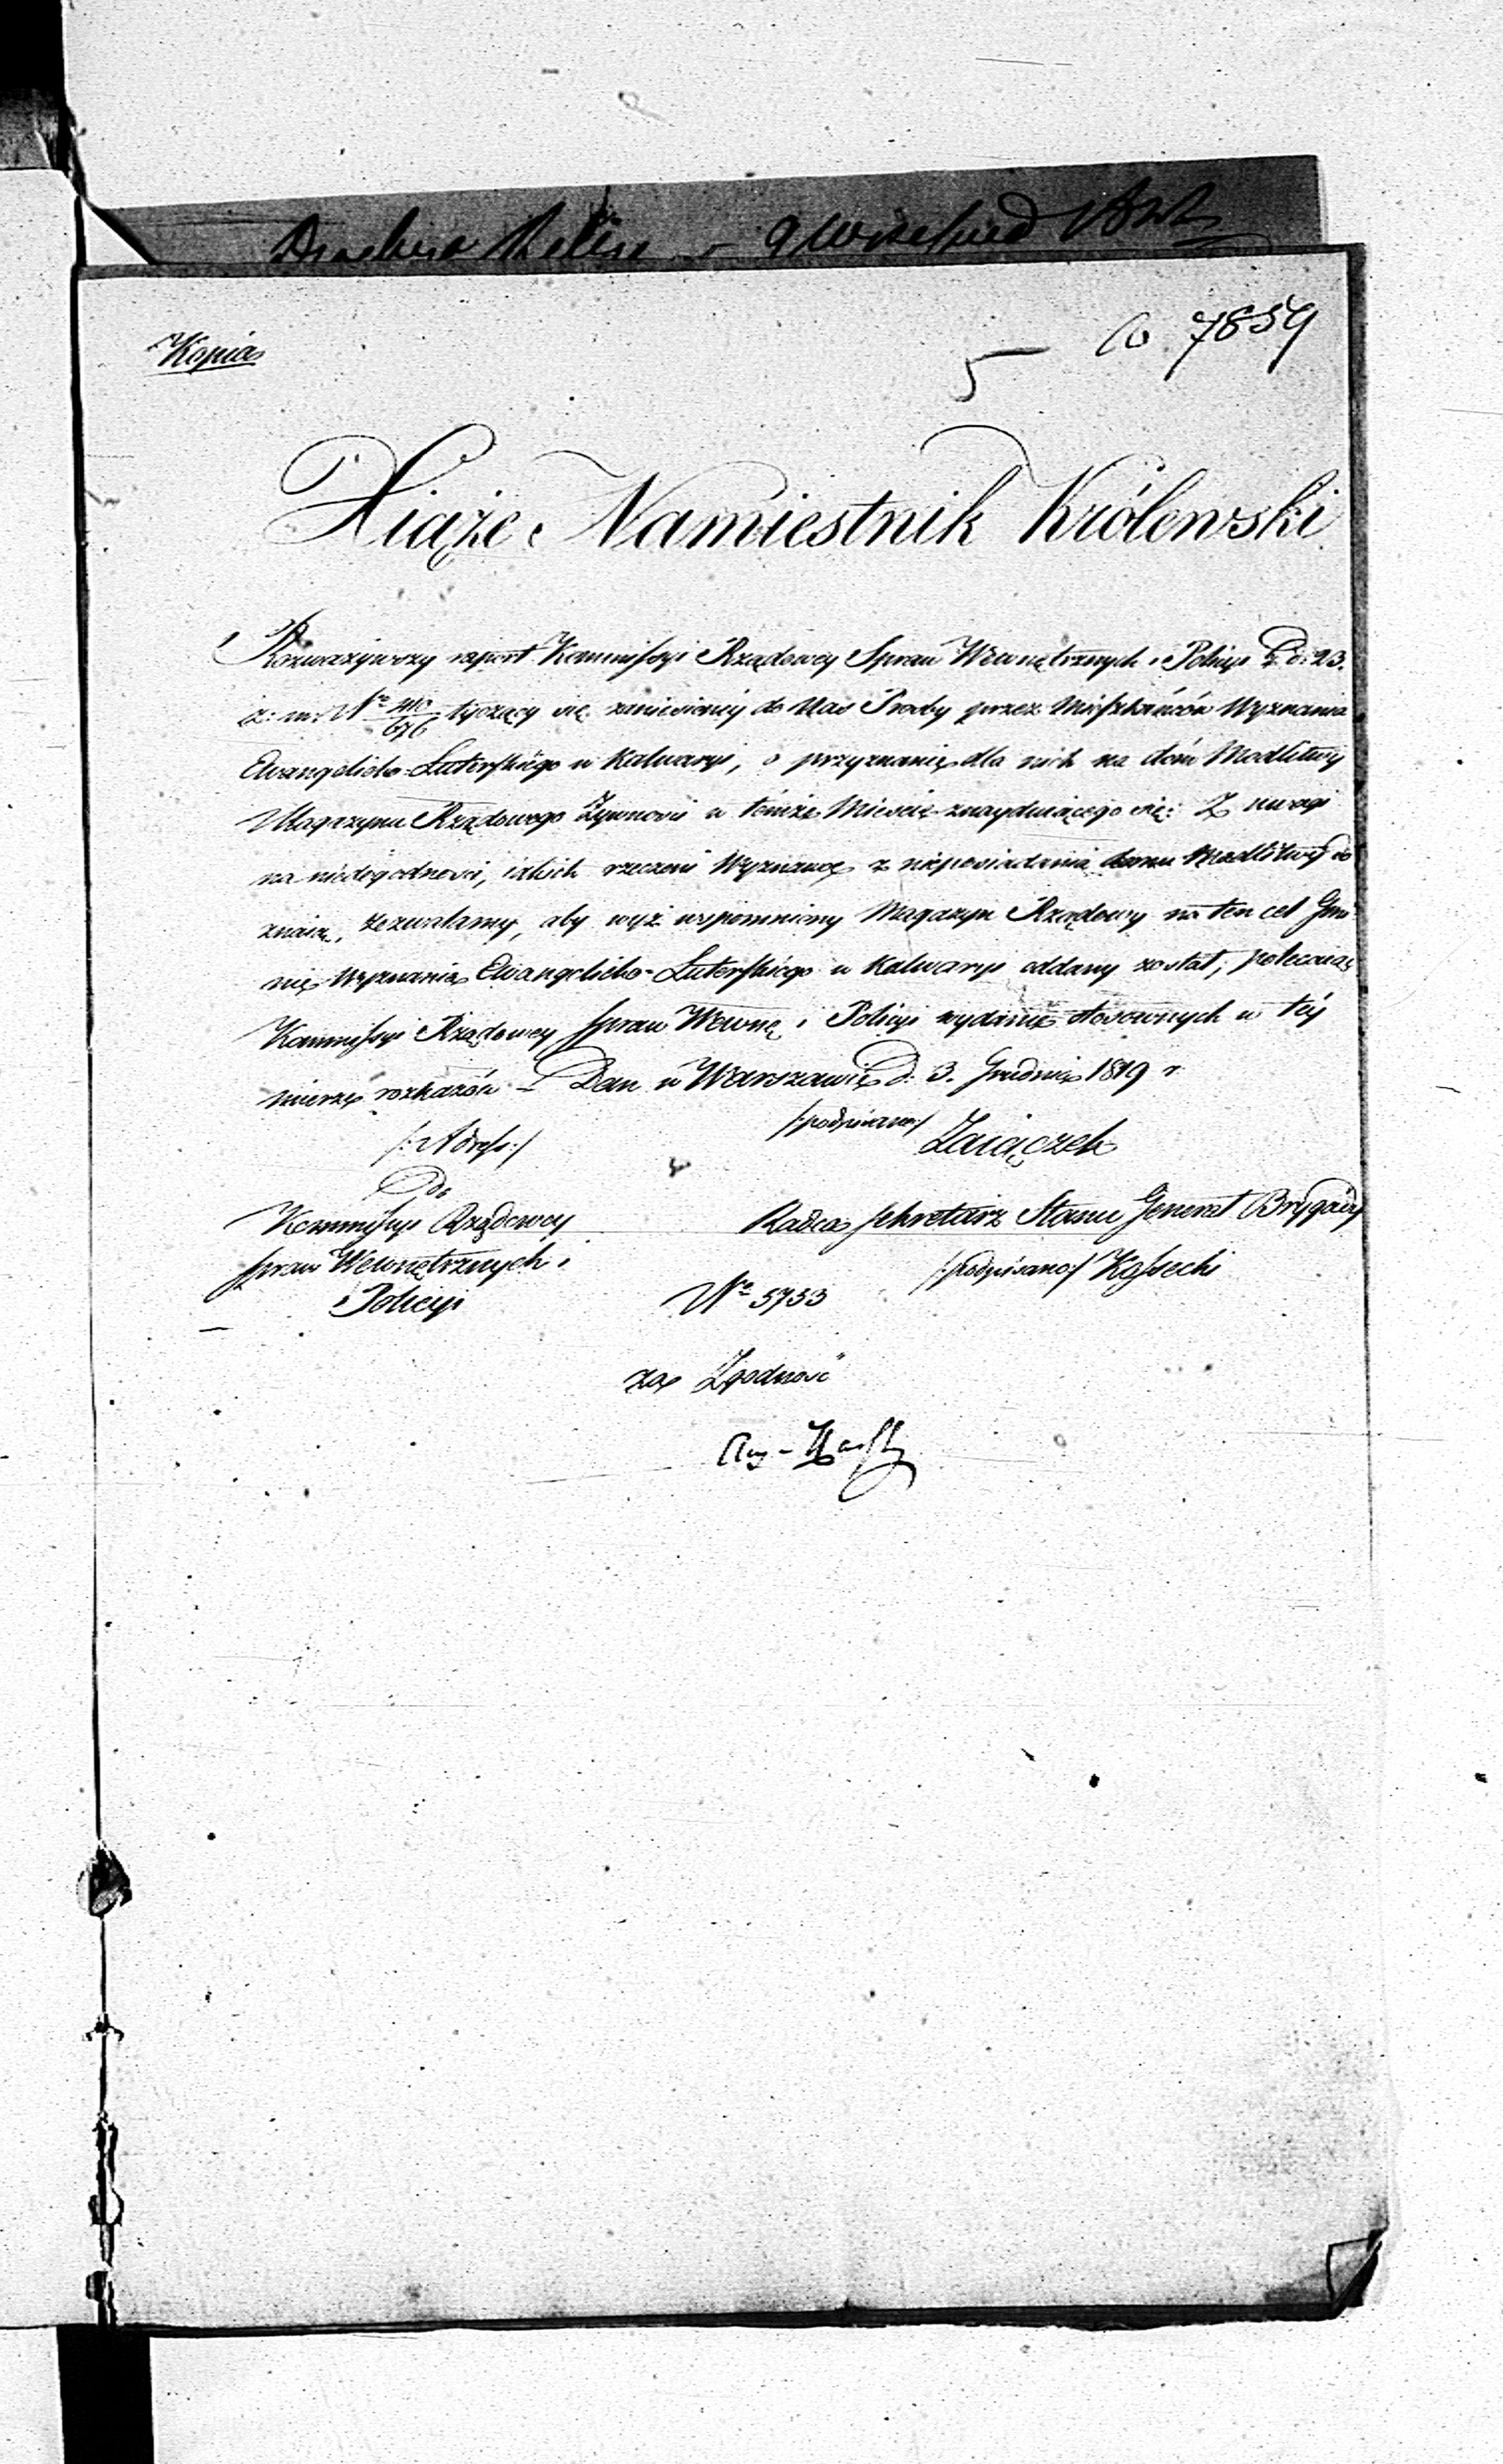 Kopia
5 7859
Xiąże Namiestnik Królewski
Rozważywszy raport Kommissyi Rządowey Spraw Wewnętrznych i Policyi D. d: 23.
z: m: Nro 676 tyczący się zaniesioney do Nas Prośby przez Mieszkańców Wyznania
Ewangelicko-Luterskiego w Kalwaryi, o przyznanie dla nich na dóm Modlitwy
Magazynu Rządowego Żywności w témże Mieście znayduiącego się: Z uwagi
na niedogodności, iakich rzeczeni Wyznawcy z nieposiadania domu Modlitwy do
znaią, zezwalamy, aby wyż wspomniony Magazyn Rządowy na ten cel Gmi
nie Wyznania Ewangelicko-Luterskiego w Kalwaryi oddany został, polecaiąc
Kommissyi Rządowey Spraw Wewnę i Policyi wydanie stosownych w téy
mierze rozkazów – Dan w Warszawie d: 3. Grudnia 1819 r.
/:podpisano:/ Zaiączek
/:Adress:/
Do
Kommissyi Rządowey
Spraw Wewnętrznych i
Policyi
Radca Sekretarz Stanu Generał Brygady
/:podpisano:/ Kossecki
No 5733
za Zgodność